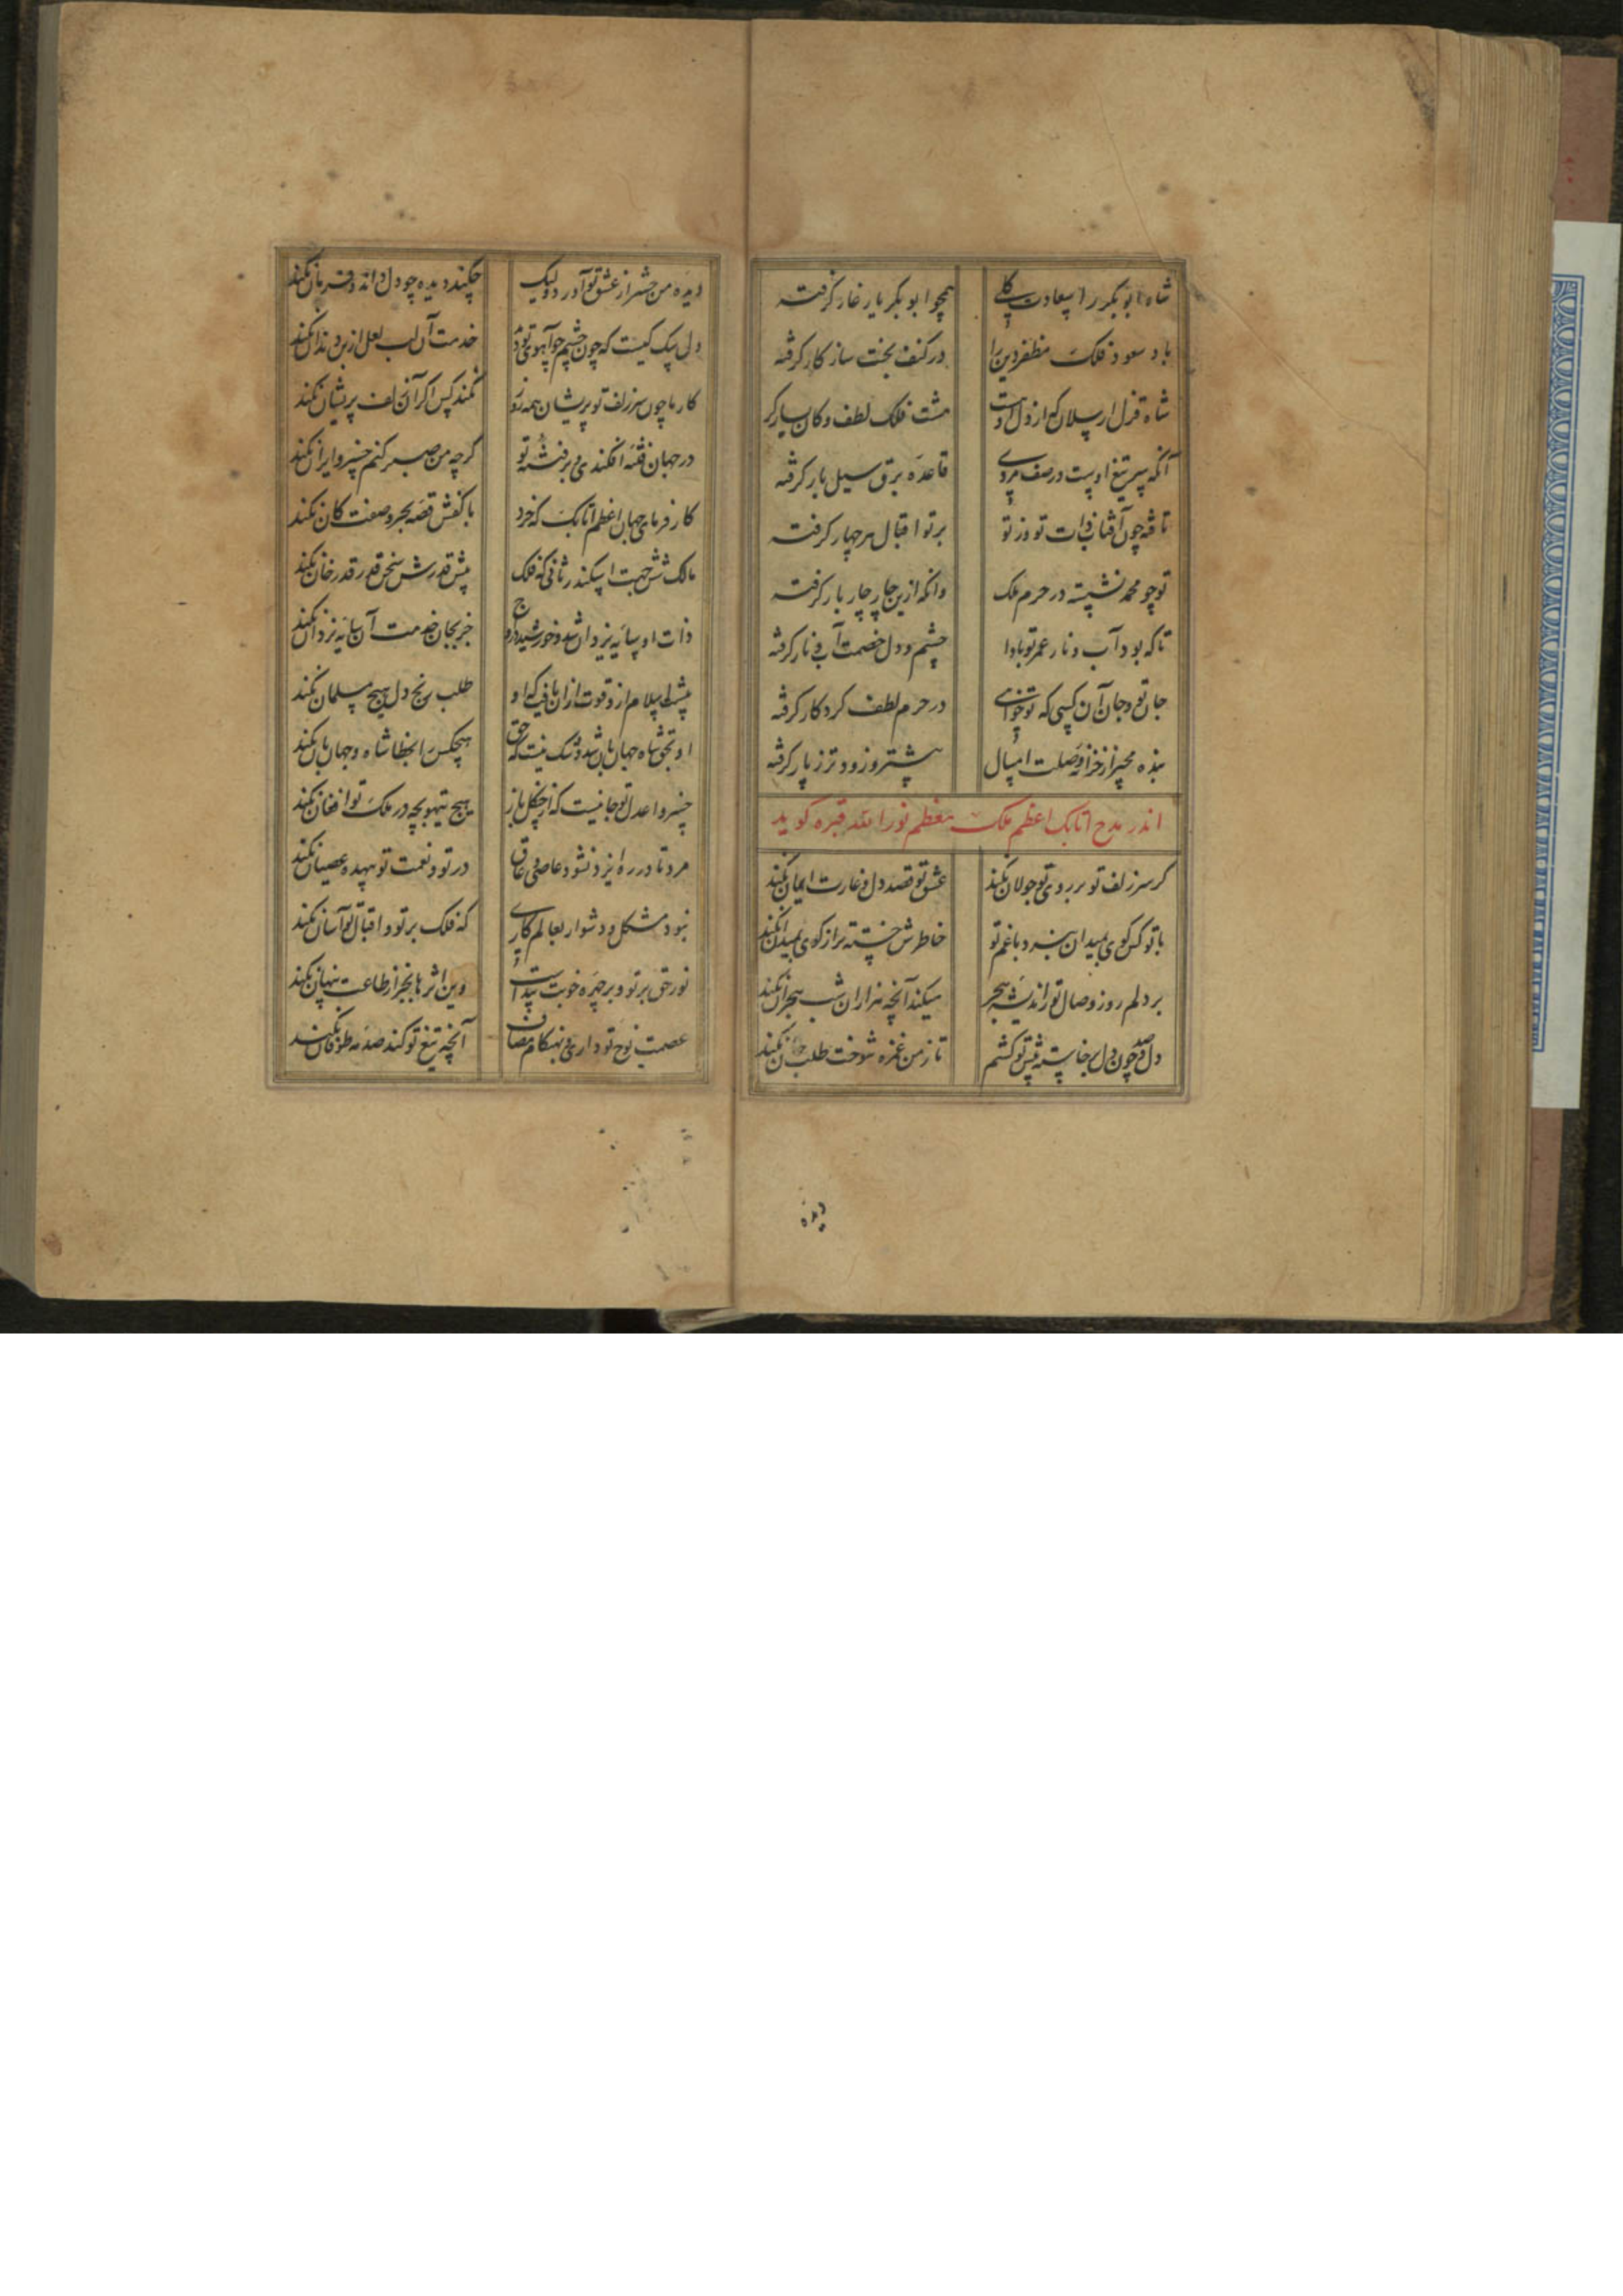 شاه ابوبکر را سعادت کلی
همچو ابوبکر یار غار گرفته
باد سعود فلک مظفردین را
در کنف بخت سازکار گرفته
شاه قزل ارسلان که از دل و دست
مشت فلک لطف و کان یسار گرفته
آنکه سر تیغ اوست در صف مردی
قاعده برق سیل بار گرفته
تافته چون آفتاب ذات تو وز تو
پرتو اقبال هر چهار گرفته
تو چو محمد نشسته در حرم ملک
وانکه ازین چار چار یار گرفته
تا که بود آب و نار عمر تو بادا
چشم و دل خصمت آب و نار گرفته
جان تو و جان آن کسی که تو خواهی
در حرم لطف کردکار گرفته
بنده مجیر از خزانه صلت امسال
بیشتر و زودتر ز پار گرفته
اندر مدح اتابک اعظم ملک معظم نورالله قبره گوید
گر سر زلف تو بر روی تو جولان نکند
عشق تو قصد دل و غارت ایمان نکند
با تو کس گوی بمیدان نبرد با غم تو
خاطرش خسته تر از گوی بمیدان نکند
بر دلم روز وصال تو ز اندیشه هجر
میکند آنچه هزاران شب هجران نکند
دل و صد چون دل برخاسته پیش تو کشم
تا ز من غمزه شوخت طلب جان نکند
دیده
دیده من حشر از عشق تو آورد ولیک
چکند دیده چو دل داند و فرمان نکند
دل سگ کیست که چون چشم چو آهوی تو دید
خدمت آن لب لعل از بن دندان نکند
کار ما چون سر زلف تو پریشان همه زو
نکند کس اگر آن زلف پریشان نکند
در جهان فتنه افکندی و بر فتنه تو
گرچه من صبر کنم خسرو ایران نکند
کارفرمای جهان اعظم اتابک که خرد
با کفش قصه بحر و صفت کان نکند
مالک شش جهت اسکندر ثانی که فلک
پیش قدرش سخن قدر قدرخان نکند
ذات او سایه یزدان شد و خورشید درو
جز بجان خدمت آن سایه یزدان نکند
پشت اسلام ازو قوت ازان یافت که او
طلب رنج دل هیچ مسلمان نکند
او بحق شاه جهانبان شد و شک نیست که حق
هیچکس را بخطا شاه و جهانبان نکند
خسروا عدل تو جائیست که از چنگل باز
هیچ تیهو بچه در ملک تو افغان نکند
مرد تا در ره ایزد نشود عاصی و عاق
در تو و نعمت تو بیهده عصیان نکند
نبود مشکل و دشوار بعالم کاری
که فلک بر تو و اقبال تو آسان نکند
نور حق بر تو و بر چهره خوبت پیداست
وین اثرها بجز از طاعت پنهان نکند
عصمت نوح تو داری و بهنکام مصاف
آنچه تیغ تو کند صدمه طوفان نکند